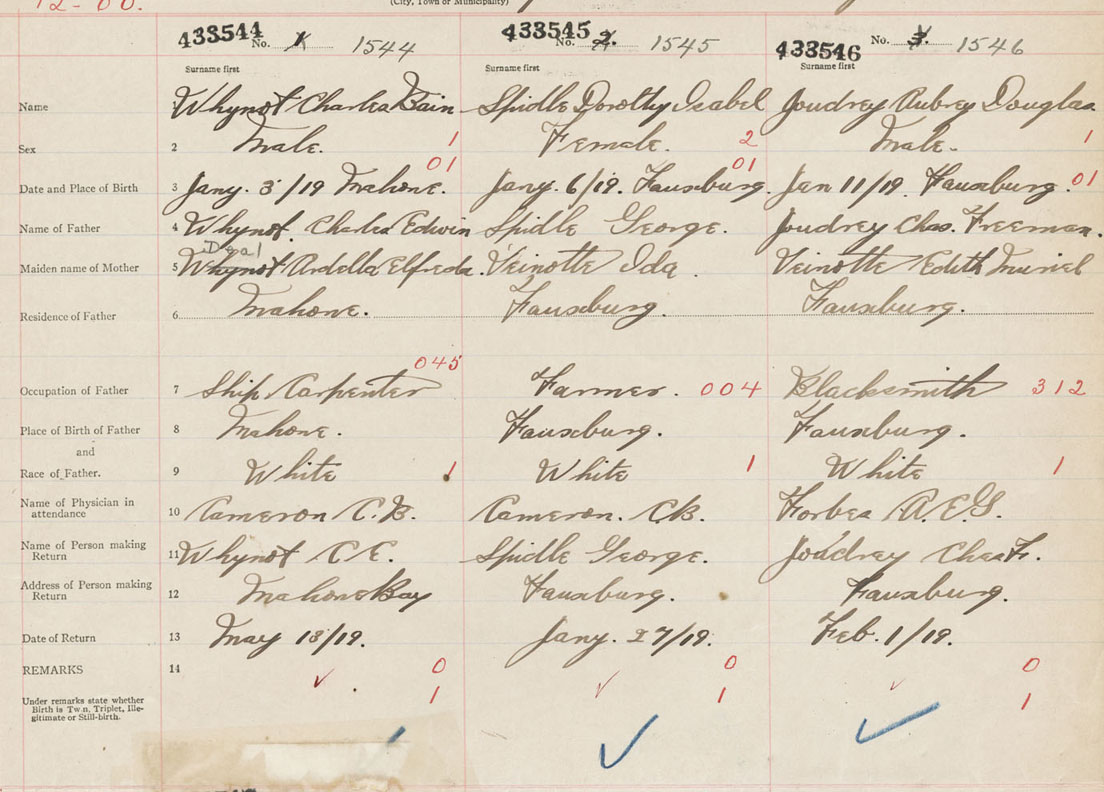 12-00.
(City, Town or Municipality)
433544 No. 1 1544 433545 No. 2. 1545 433546 No. 3. 1546
Surname first Surname first Surname first
Name Whynot Charles Bain Spidle Dorothy Isabel Joudrey Aubrey Douglas
Sex 2 Male. 1 Female. 2 Male. 1
01 01
Date and Place of Birth 3 Jany. 3/19 Mahone. Jany. 6/19. Fauxburg. Jan 11/19 Fauxburg. 01
Name of Father 4 Whynot. Charles Edwin Spidle George. Joudrey Chas. Freeman.
Deal
Maiden name of Mother 5 Whynot Ardella Elfreda. Veinotte Ida. Veinotte Edith Muriel
Residence of Father 6 Mahone. Fauxburg. Fauxburg.
045
Occupation of Father 7 Ship Carpenter Farmer. 004 Blacksmith 312
Place of Birth of Father 8 Mahone. Fauxburg. Fauxburg.
and
Race of Father. 9 White 1 White 1 White 1
Name of Physician in
attendance 10 Cameron C.B. Cameron. C.B. Forbes A.E.G.
Name of Person making
Return 11 Whynot C.E. Spidle George. Joudrey Chas F.
Address of Person making
Return 12 Mahone Bay Fauxburg. Fauxburg.
Date of Return 13 May 13/19. Jany. 27/19. Feb. 1/19.
REMARKS 14 0 0 0
Under remarks state whether 1 1 1
Birth is Twin, Triplet, Ille-
gitimate or Still-birth.